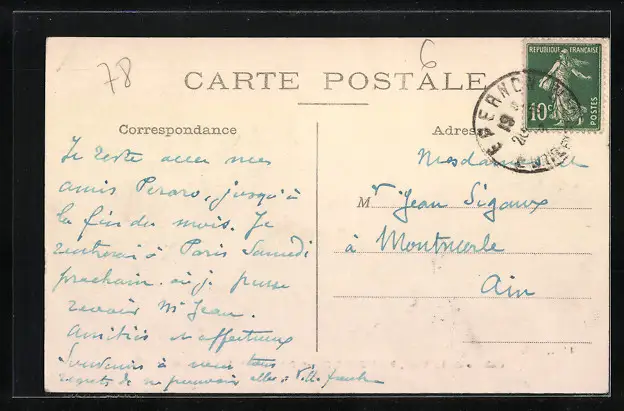 78
6
CARTE POSTALE
REPUBLIQUE FRANÇAISE
10c
POSTES
EPERNON
Correspondance
Adresse
Je reste avec mes
amis Peraro, jusqu'à
la fin du mois. Je
rentrerai à Paris Samedi
prochain. où je pense
revoir Mr Jean.
Amitiés et affectueux
Souvenirs à vous tous
regrets de ne pouvoir aller à
Mesdames
Mr Jean Sigaux
à Montmerle
Ain